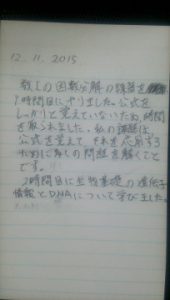 12.11.2015
数Iの因数分解の演習を
1時間目にやりました。公式を
しっかりと覚えていないため、時間
を取られました。私の課題は、
公式を覚えて、それを応用する
ために多くの問題を解くこと
です。
2時間目に生物基礎の遺伝子
情報とDNAについて学びました。